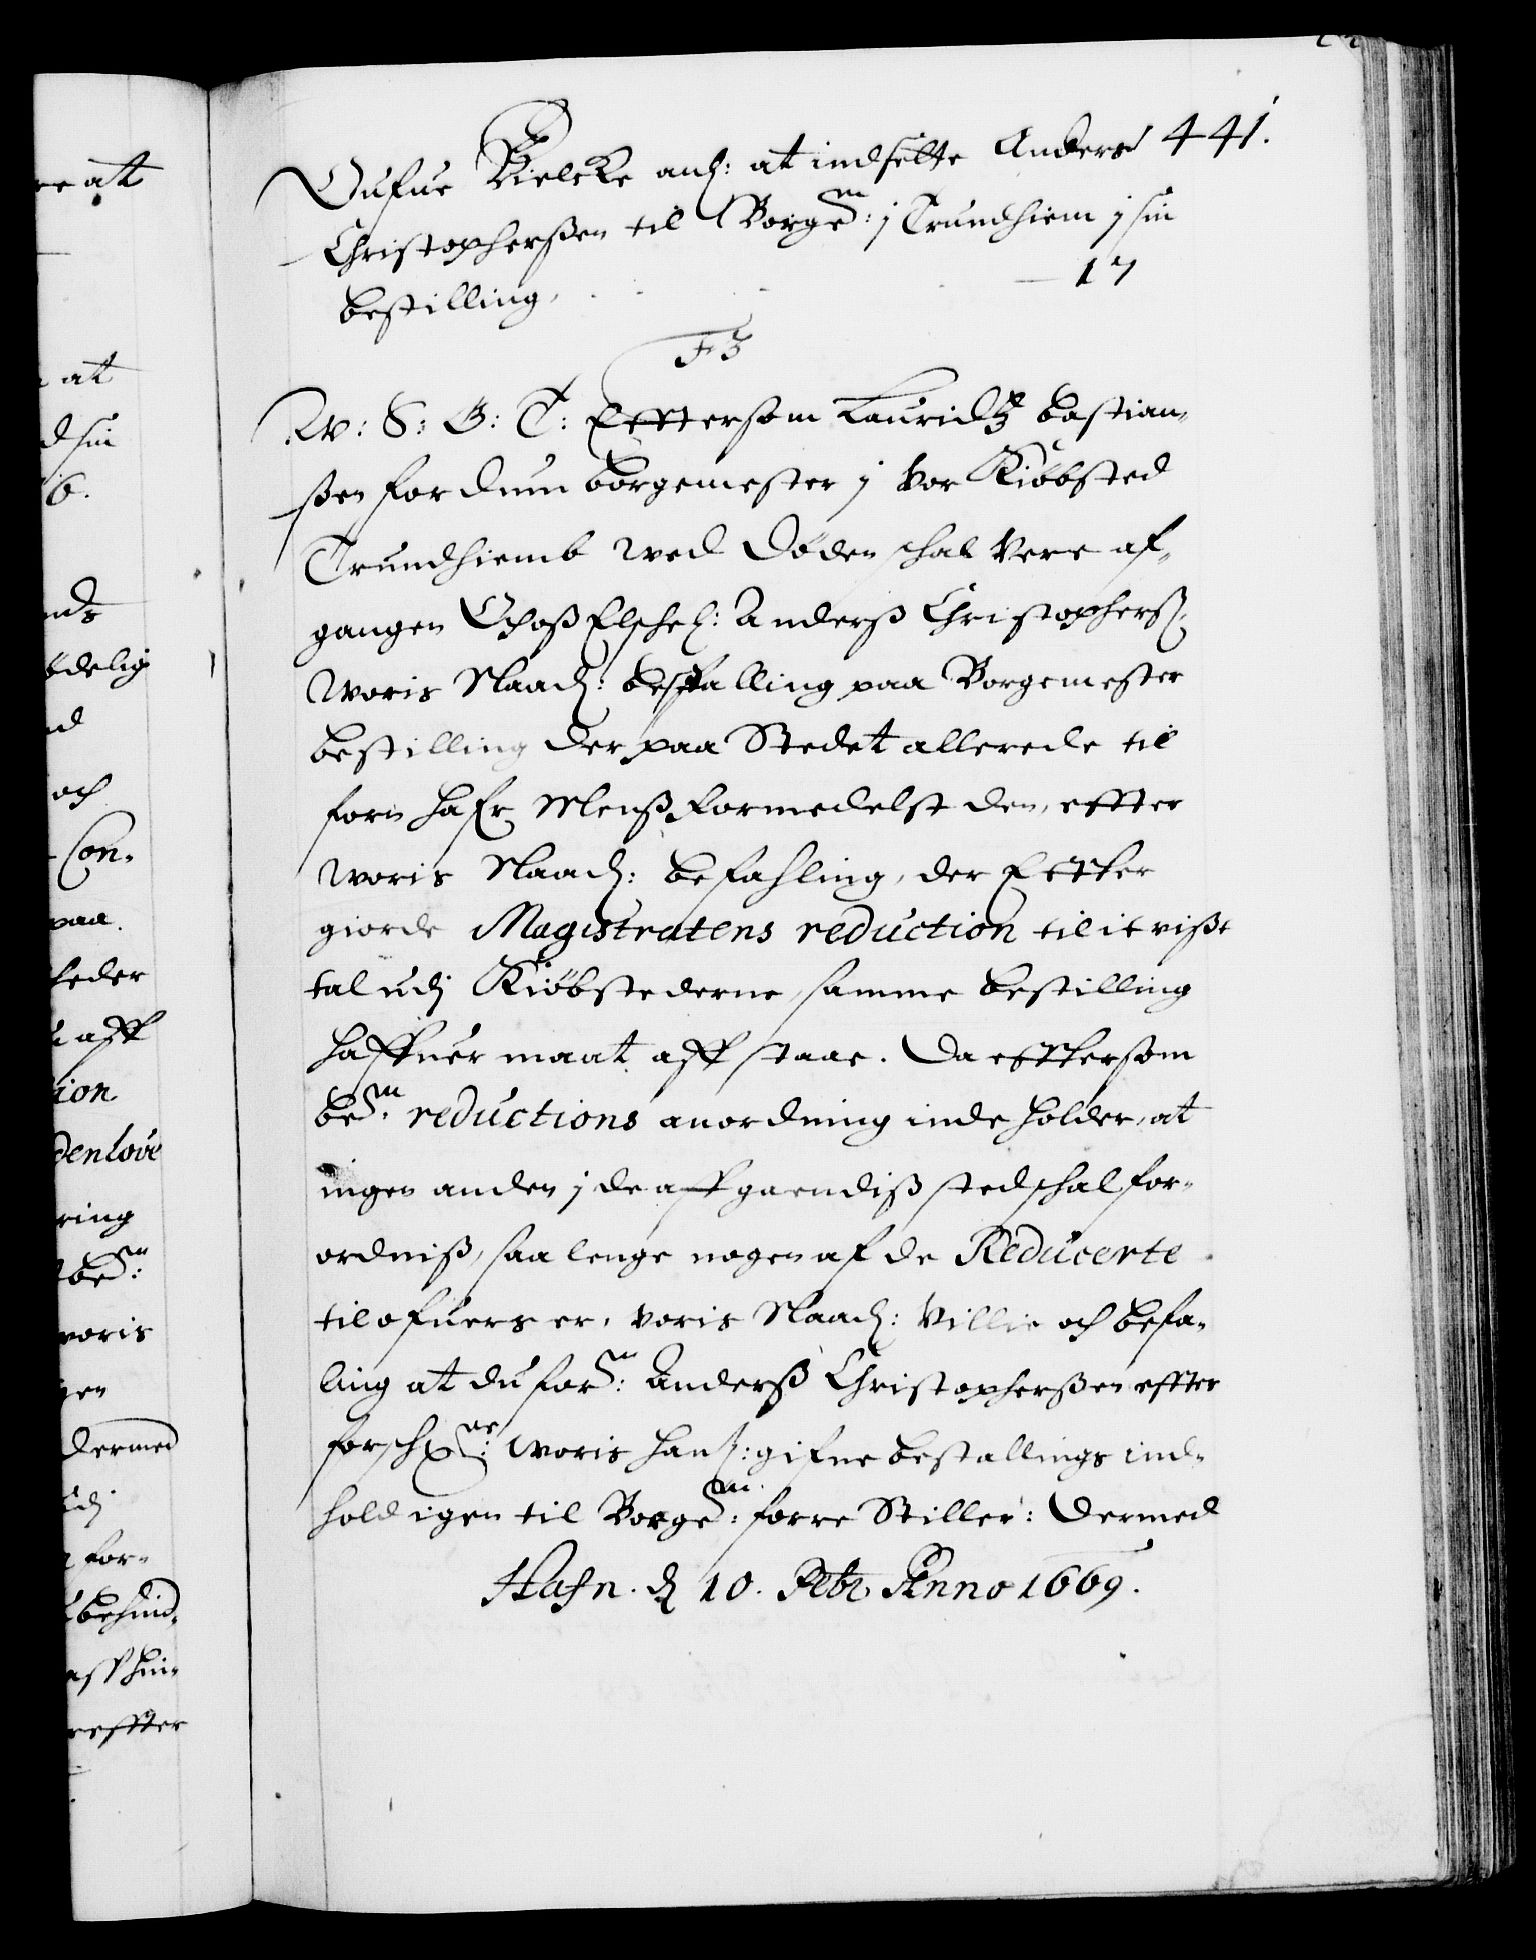 441.
Oufue Bielcke anl: at indsette Anders
Christopherßen til Borgem: j Trundhiem j sin
bestilling, 17
F 3
W: S: G: T: Efftersom Lauridtz bastian-
ßen fordum borgemester j vor Kiøbsted
Trundhiemb wed døden schal vere af-
gangen Och oß Elschel: Anderß Christopherß:
woris Naadl: bestalling paa Borgemester
bestilling der paa Stedet allerede til
forn hafr, Menß formedelst den, effter
woris Naadl: befahling, der Effter
giorde Magistratens reduction til it vißt
tal udj Kiøbstederne, samme bestilling
haffuer maat affstaae. Da efftersom
bem: reductions anordning indeholder, at
ingen anden j de affgaendiß sted schal for-
ordniß, saa lenge nogen af de Reducerte
til ofuers er, voris Naadl: Villie och befa-
ling at du form: Anderß Christopherßen effter
forschne: woris hannß: gifne bestallings ind-
hold igen til Borgem: forre Stiller: Dermed
Hafn. d 10. Febr Anno 1669.
re at
at
d sin
6.
delig
och
Con-
paa.
leder
aff
ion
den love
ring
bem:
voris
gen
dermed
udj
for-
behind-
effter